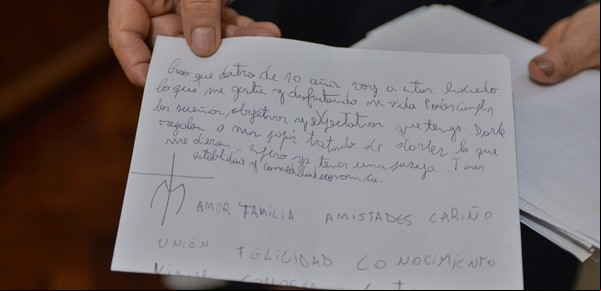 Creo que dentro de 10 años voy a estar haciendo
lo que me gusta y disfrutando mi vida. Poder cumplir
los sueños, objetivos y expectativas que tengo. Darle
regalos a mis papis tratando de darles lo que
me dieron. Espero ya tener una pareja. Tener
estabilidad y comodidad económica.
AMOR FAMILIA AMISTADES CARIÑO
UNIÓN FELICIDAD CONOCIMIENTO